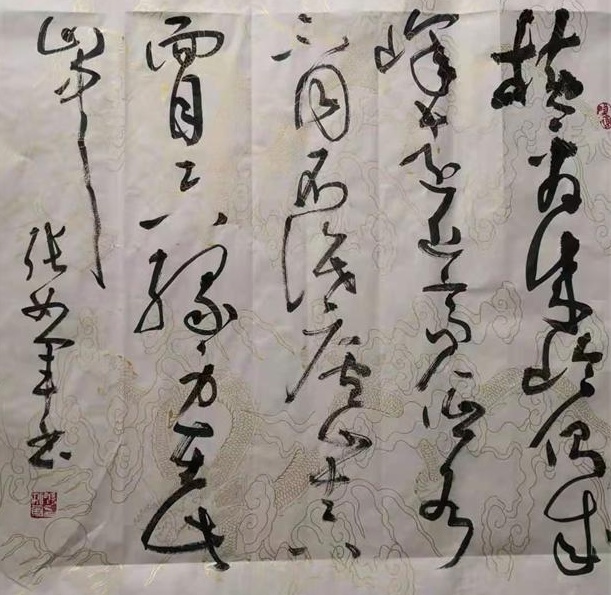 横看成岭侧成
峰远近高低各
不同不识庐山真
面目只缘身在此
山中
张军书